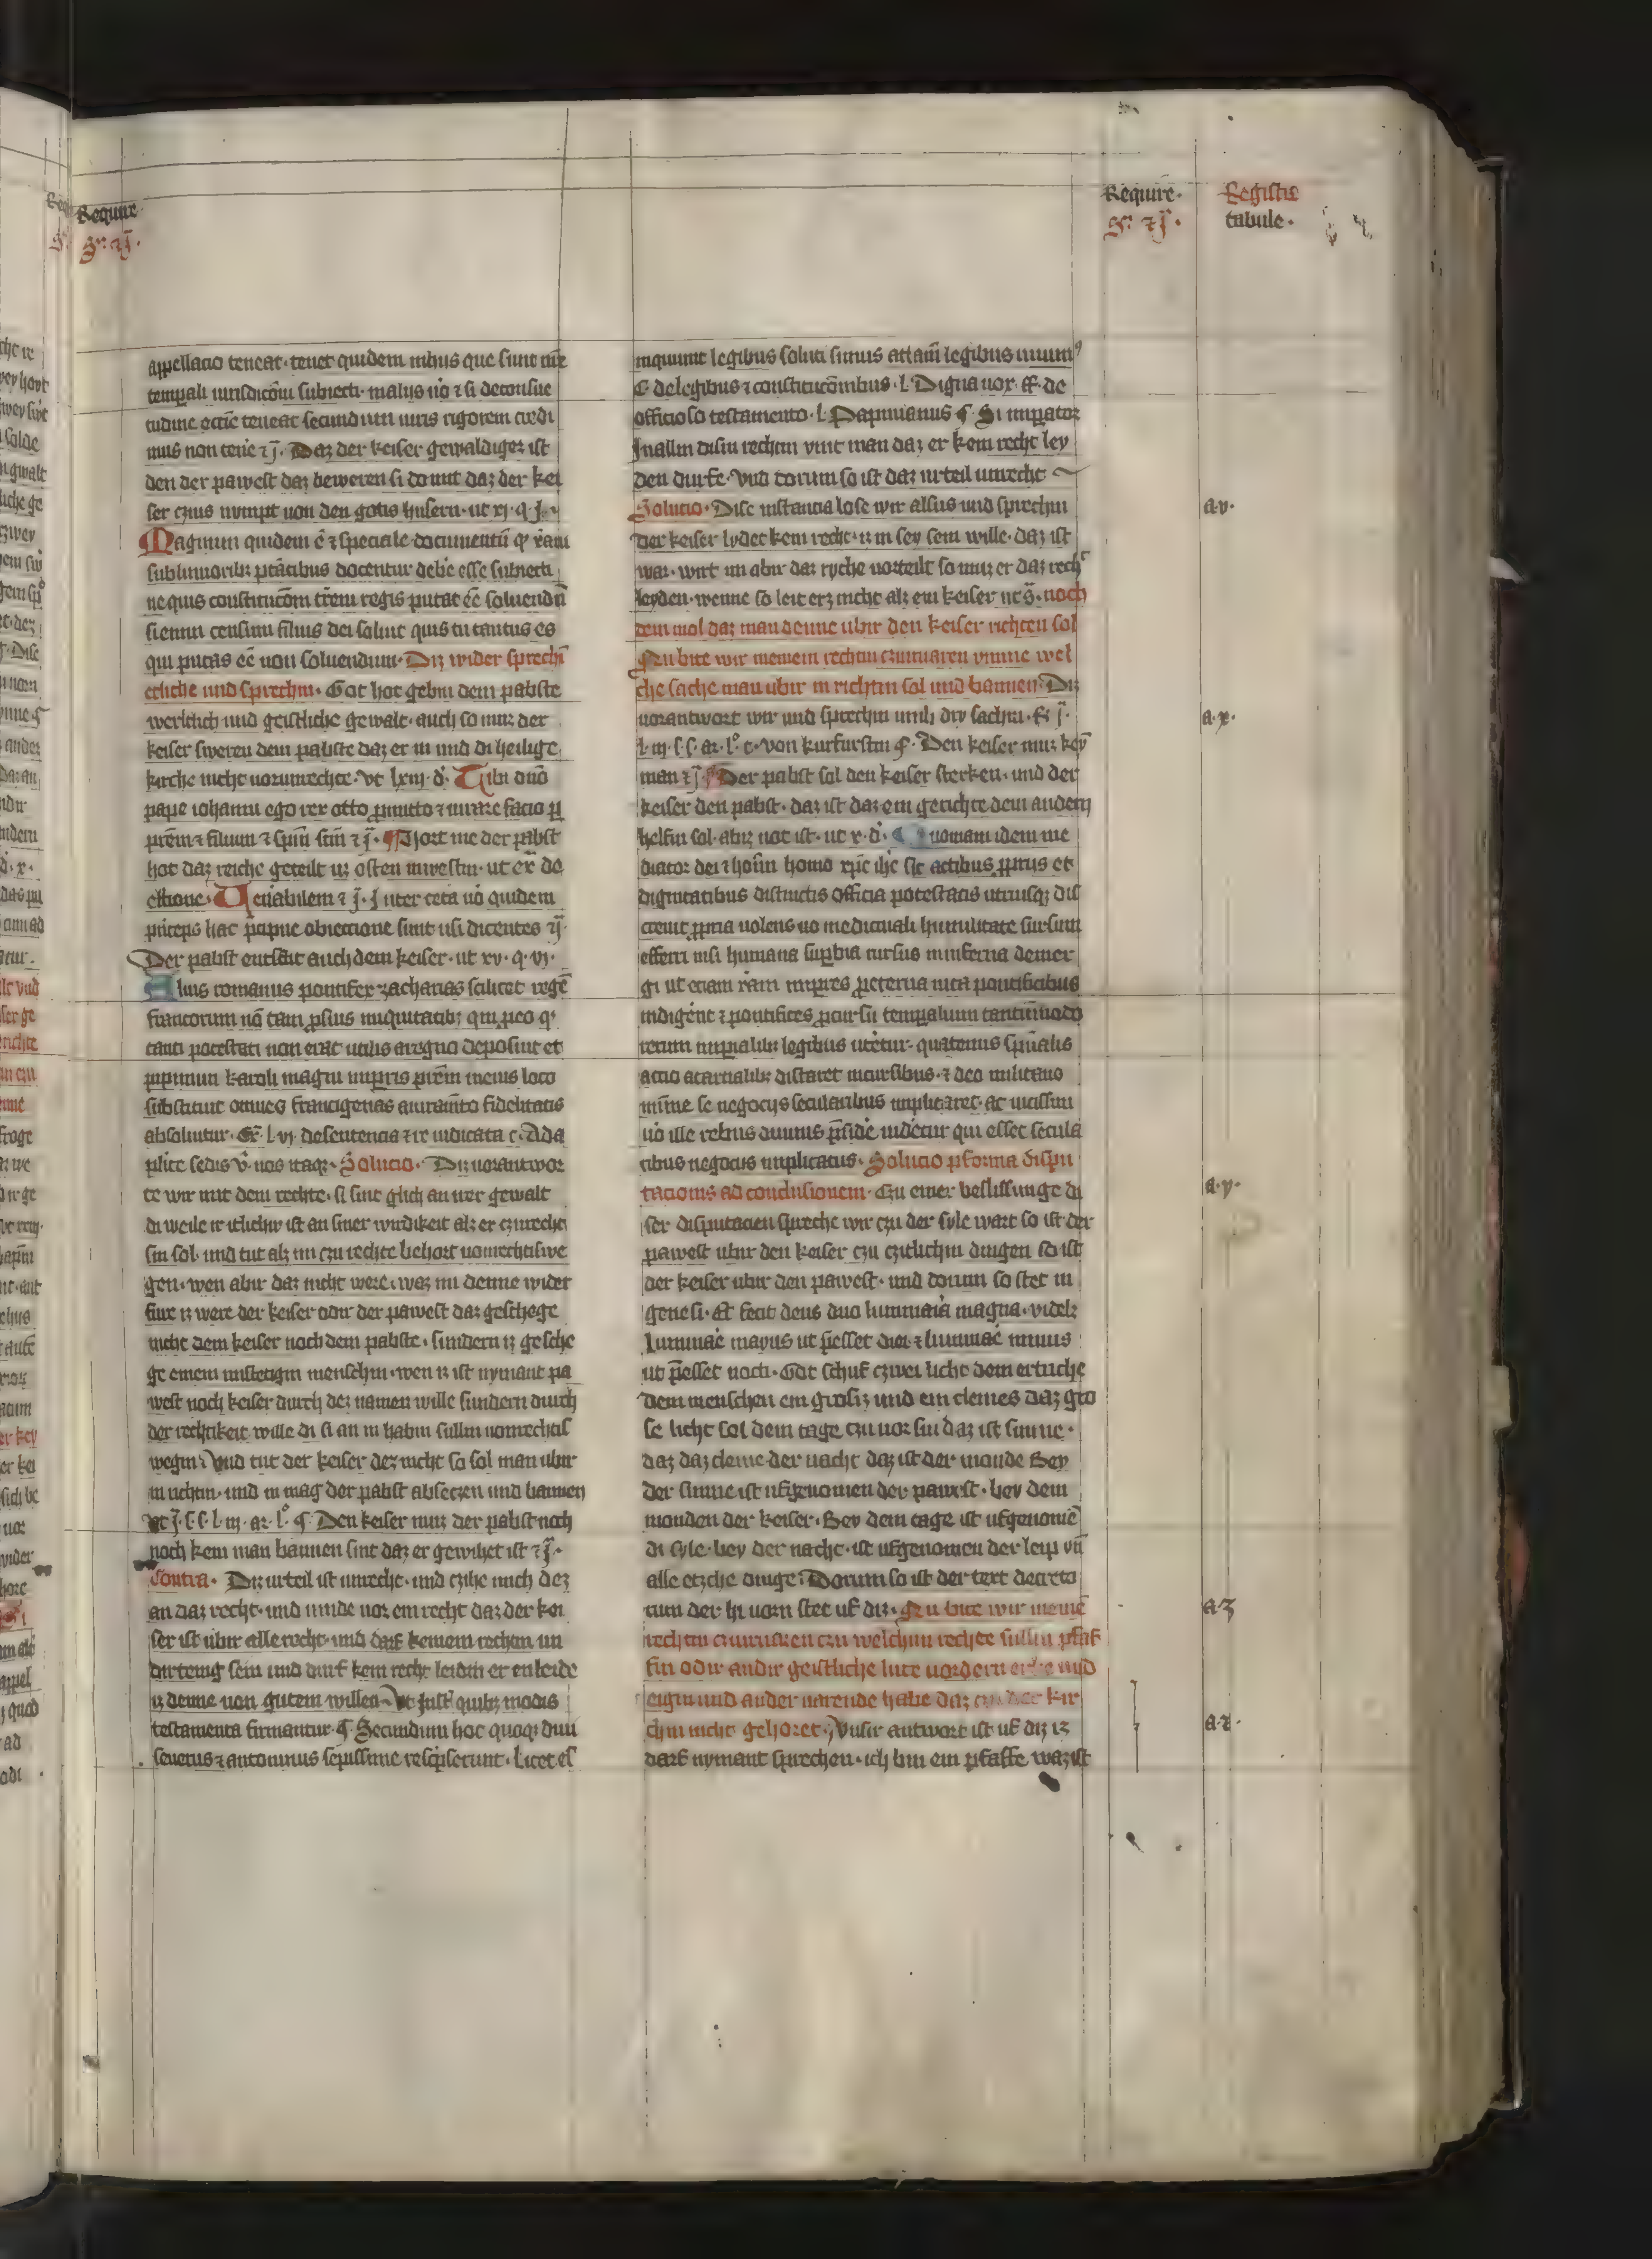 Require
Require
Registre
tabule
appellacio teneat. tenet quidem in hiis que sunt nr̄e
temp̱ali iurisdictōni subiecti. malus ū̊ ⁊ si deconsue
tudine ecc̄ie teneat secundum iuris rigorem credi
mus non teñe ⁊ J̄. Daz der keiser gewaldiger ist
den der pawest daz beweren si do mit daz der kei
ser czins nympt uon den gotis husern. ut xj. q. J.
Magnum quidem ē ⁊ speciale documentū ꝙ xp̄iani
sublimiorib; ptātibus docentur debēe esse subiecti
ne quis constitucōm tr̄eni regis putat eē soluendā
si enim censum filius dei soluit quis tu tantus es
qui putas eē non soluendum. Diz wider sprechī
etliche und sprechin. Got hot gebin dem pabste
wertlich und geistliche gewalt. auch so muz der
keiser sweren dem pabste daz er in und di heilige
kirche nicht uorunrechte. Vt lxiij. d̄. Tibi dn̄o
pape iohanni ego rex otto ꝓmitto ⁊ iurare facio ꝑ
prēm ⁊ filium ⁊ spm̄ scm̄ ⁊ J̄. ¶ Hort me der pabst
hot daz reiche geteilt uz osten in westin. ut ex̄ de
eltione. Uenerabilem ⁊ J̄. Inter cet̄a ū̊ quidem
pͥnceps hac pͥcipue obiectione sunt usi dicentes ⁊J̄.
Der pabst entsatzt auch dem keiser. ut xv. q. vj.
Alius romanus pontifex zacharias scilicet regē
francorum nō tam ꝓ suis iniquitatib; qm̄ ꝓ eo q
tanti potestati non erat utilis a regno deposuit et
pipinum karoli magni imp̱ris prēm in eius loco
substituit omnes francigenas a iuramēto fidelitatis
absoluitur. Ex̄. l. vj. de sentencia ⁊ re iudicata c. Ad a
plice sedis v̄. nos itaqꝫ. Solucio. Diz uorantwor
te wir mit dem rechte. si sint glich an irer gewalt
di weile ir itlichir ist an siner wirdikeit alz er czurecht
sin sol. und tut alz im czu rechte behort uomrechtiswe
gen. wen abir daz nicht were. waz im denne wider
fure iz were der keiser odir der pawest daz geschege
nicht dem keiser noch dem pabste. sundern iz gesche
ge einem unstetigin menschin. wen iz ist nymant pa
west noch keiser durch dez namen wille sundern durch
der rechtikeit wille di si an in habin sullin uomrechtis
wegin. Und tut der keiser dez nicht so sol man ubir
in richtin. und in mag der pabst abseczen und bannen
vt J̄. s. s. l. iij. ar. l°. ¶ Den keiser muz der pabst noch
noch kein man bannen sint daz er gewihet ist ⁊ J̄.
Contra. Diz urteil ist unrecht. und czihe mich dez
an daz recht. und uinde uor ein recht daz der kei
ser ist ubir alle recht. und darf keinem rechtin un
dirtenig sein und durf kein recht leidin er enleide
iz denne uon gutem willen. Vt Inst̄ quib; modis
testamenta firmantur. ¶ Secundum hoc quoqꝫ diui
seuerus ⁊ antoninus sepissime rescripserunt. licet eī
inquiunt legibus soluti simus attam̄ legibus uiuim⁹
C de legibus ⁊ constitucōnibus. l. Digna uox. ff. de
officioso testamento. l. Papinianus ¶ Si imp̱ator
In allin disin rechtin vint man daz er kein recht ley
den durfe. Vnd dorum so ist daz urteil unrecht
Solucio. Dise instancia lose wir alsus und sprechin
Der keiser lydet kein recht. iz in sey sein wille. daz ist
war. wirt im abir daz ryche uorteilt so muz er daz recht
leyden. wenne so leit erz nicht alz ein keiser ut s̄. noch
dem mol daz man denne ubir den keiser richten sol
Nu bite wir meinem rechtin czuinuaren vmme wel
che sache man ubir in richtin sol und bannen. Diz
uorantwort wir und sprechin umb dry sachin. ſt J̄.
l. iij. s. s. ar. l°. c. von kurfurstin ¶. Den keiser muz key
man ⁊ J̄. ¶ Der pabst sol den keiser sterken. und der
keiser den pabst. daz ist daz ein gerichte dem andern
helfin sol. abiz not ist. ut x. d̄. Quoniam idem me
diator dei ⁊ hoīm homo xp̄c ihc̄ sic actibus ꝓpriis et
dignitatibus distinctis officia potestatis utriusqꝫ dis
creuit ꝓpria uolens uo medicinali humilitate sursum
efferri nisi humana suꝑbia rursus in inferna demer
gi ut eciam xp̄iani imp̱res ꝓ eterna uita pontificibus
indigēnt ⁊ pontifices ꝓ cursu temp̱alium tantūmodo
rerum imp̱ialib; legibus utētur. quatenus spūalis
actio a carnalib; distaret incursibus. ⁊ deo militans
mīme se negocijs secularibus implicaret. ac uicissim
ū̊ ille rebus diuinis p̄sidē̊ uidetur qui esset secula
ribus negociis implicatus. Solucio ꝑ forma dispu
tacionis ad conclusionem. Czu einer beslissunge di
ser disputacien spreche wir czu der syle wart so ist der
pawest ubir den keiser czu czitlichin dingen so ist
der keiser ubir den pawest. und dorum so stet in
genesi. Et fecit deus duo luminaria magna. videlz
luminaē maius ut p̄esset diei ⁊ luminaē minus
ut p̄esset nocti. Got schuf czwei licht dem ertriche
dem menschen ein grosiz und ein cleines daz gro
se licht sol dem tage czu uor sin daz ist sunne.
daz daz cleine der nacht daz ist der monde Bey
der sunne ist ufgenomen der pawest. bey dem
monden der keiser. Bey dem tage ist ufgenomē
di syle. bey der nacht. ist ufgenomen der leip vn̄
alle etzche dinge. Dorum so ist der text decreto
rum der hi uorn stet uf diz. Nu bite wir meinē
rechtin czuuursten czu welchim rechte sullin pfaf
fin odir andir geistliche lute uordern erbe und
eigin und ander uarende habe daz czu der kir
chin nicht gehoret. Vnsir antwort ist uf diz iz
darf nymant sprechen. ich bin ein pfaffe waz ist
a.v.
a.x.
a.y.
a.z
a.⁊.